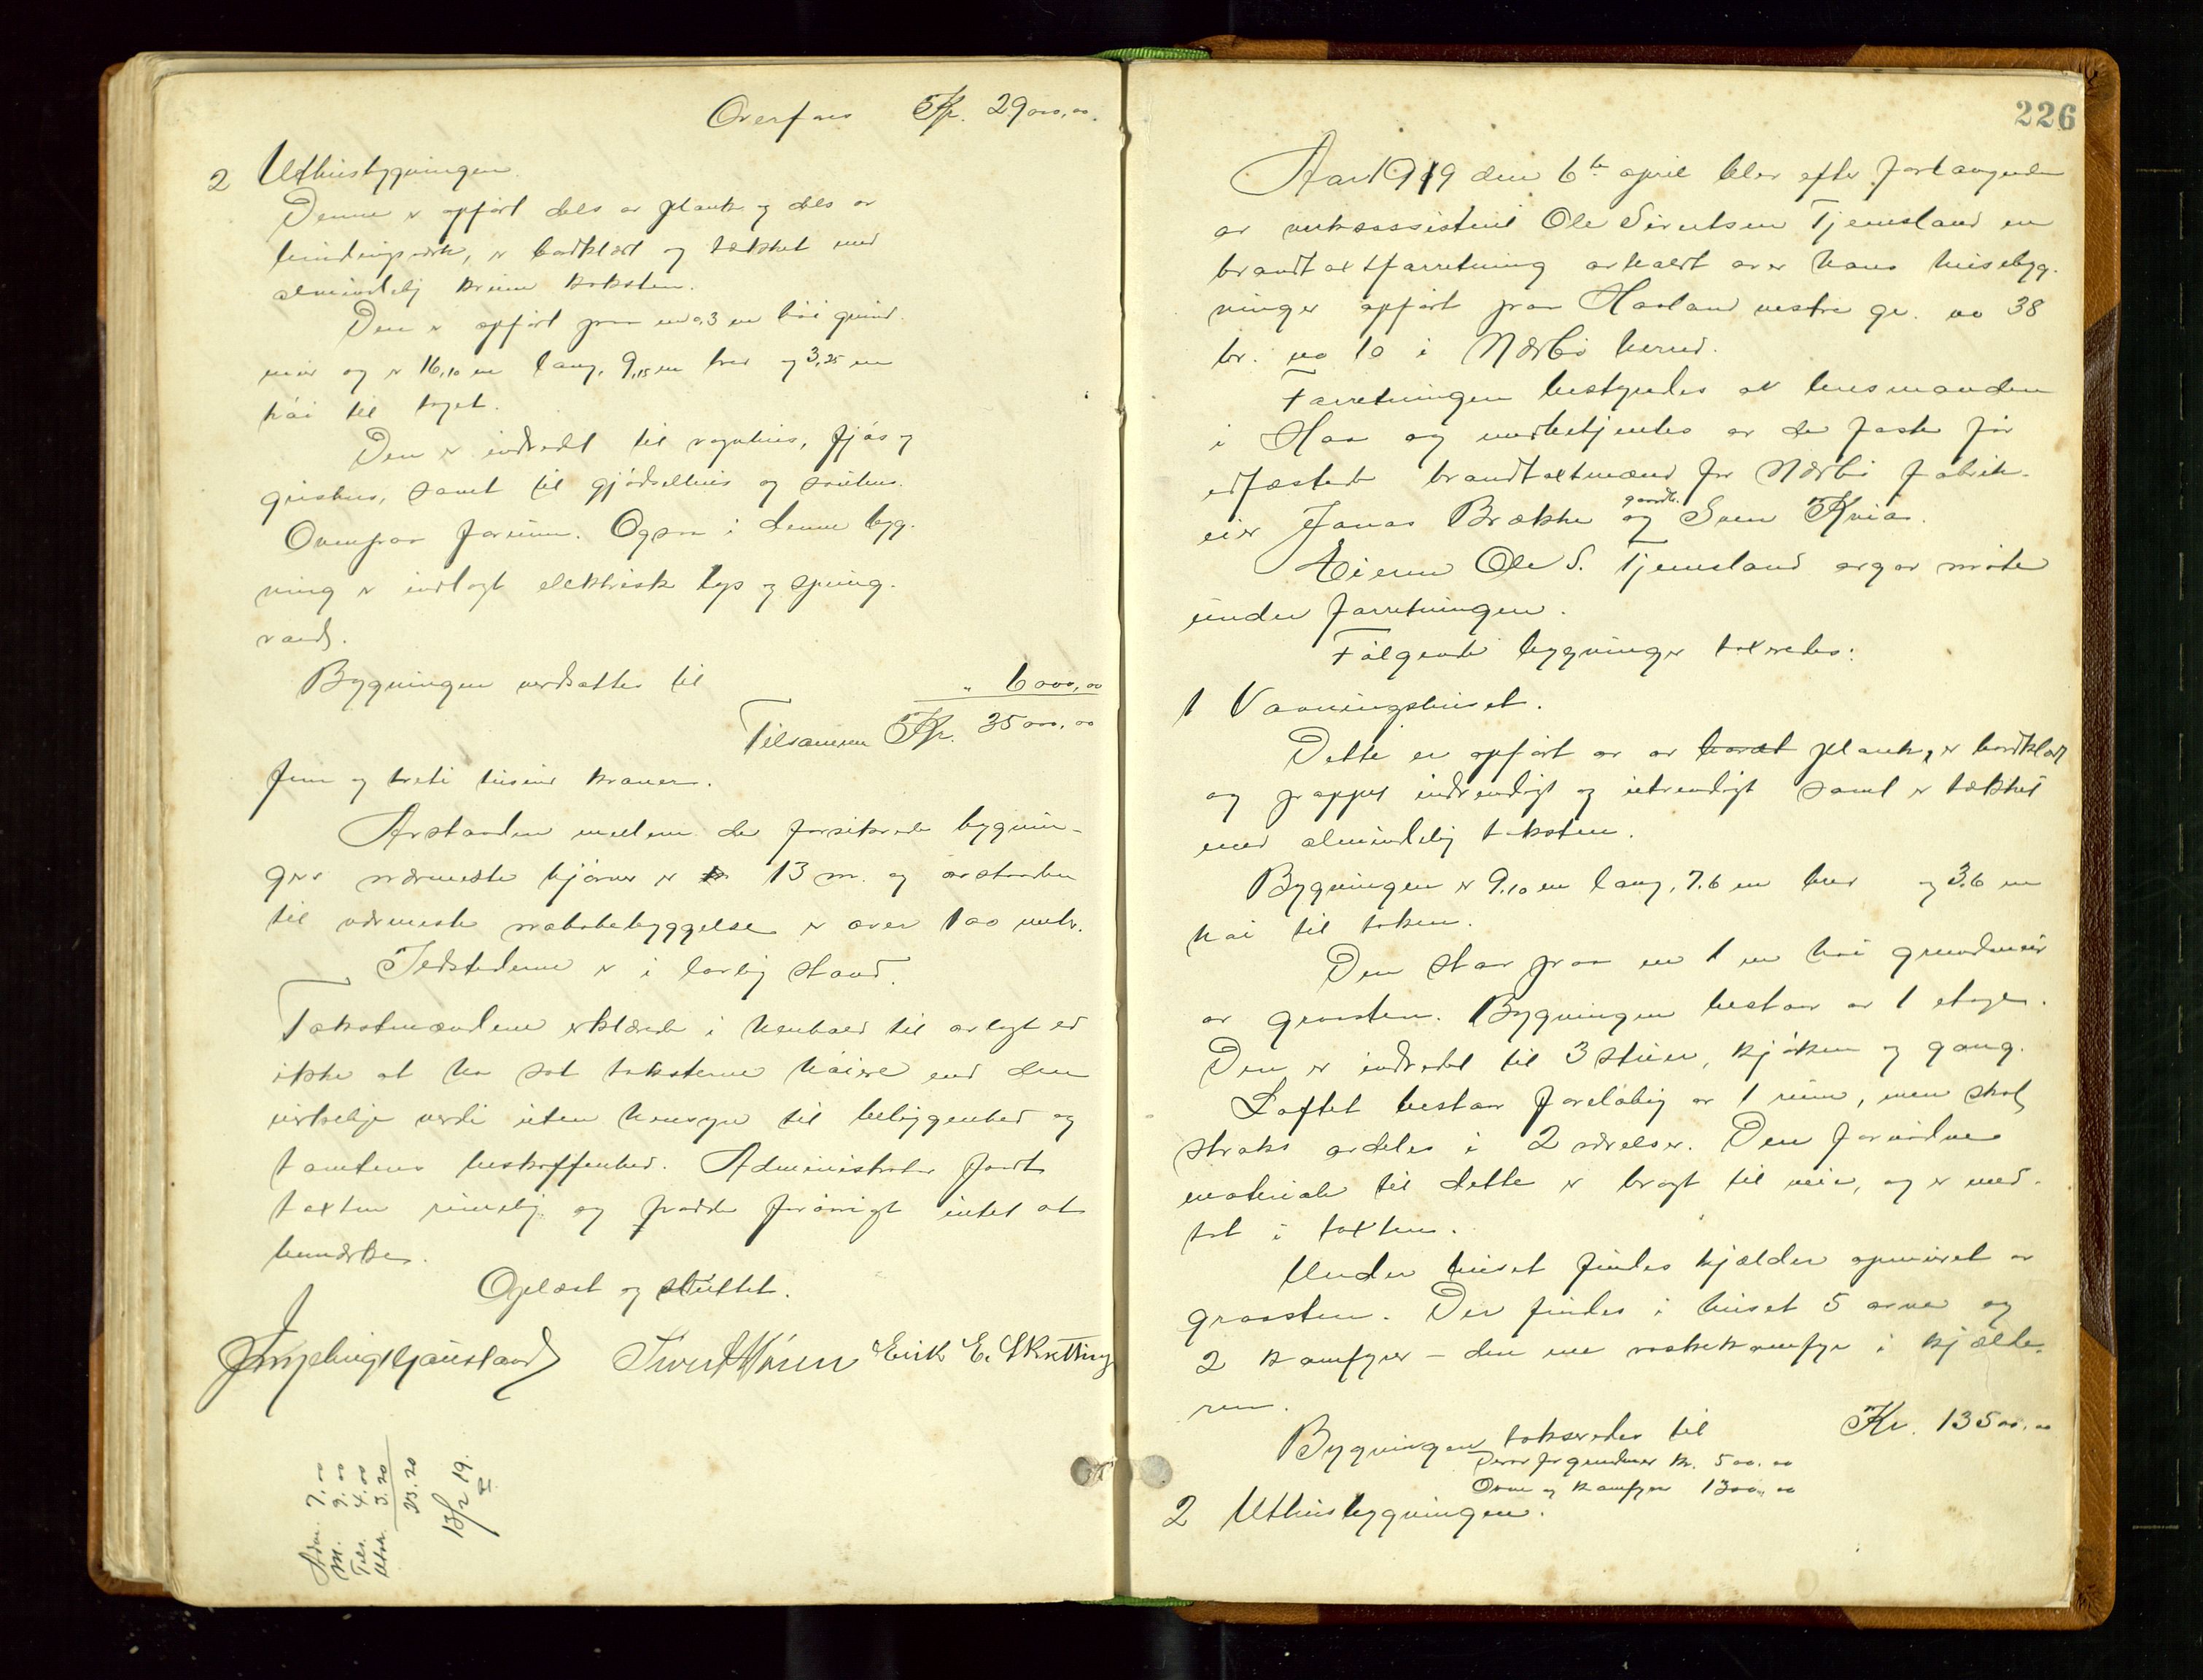 Overført Kr. 29000,00.
2 Uthusbygningen
Denne er opført dels av plank og dels av
bindingsverk, er bordklædt og tækket med
almindelig krum taksten.
Den er opført paa en 0,3 m høi grund-
mur og er 16,10 m lang, 9,15 m bred og 3,25 m
høi til taget.
Den er indredt til vognhus, fjøs og
grishus, samt til gjødselhus og
Ovenpaa forrum. Ogsaa i denne byg-
ning er indlagt elektrisk lys og spring-
vand.
Bygningen verdsættes til " 6000,00
Tilsammen Kr. 35000,00
fem og treti tusind kroner.
Avstanden mellem de forsikrede bygnin-
gers nærmeste hjørner er 13 m. og avstanden
til nærmeste nabobebyggelse er over 100 mtr.
Ildstederne er i lovlig stand.
Takstmændene erklærte i henhold til avlagt ed
ikke at ha sat taksterne høiere end den
virkelige verdi uten hensyn til beliggenhed og
tomtens beskaffenhed. Administrator fandt
taxten rimelig og hadde forøvrigt intet at
bemærke.
Oplæst og sluttet.
Erik E. Skretting
Adm. 7.00
M. 9.00
Tils. 4.00
Utsk. 3.20
23.20
13/2 19.
226
Aar 1919 den 6te april blev efter forlangende
av Ole Sivertsen Tjemsland en
brandtaxtforretning avholdt over hans husbyg-
ninger opført paa Haaland vestre gr. no 38
br. no 10 i Nærbø herred.
Forretningen bestyredes av lensmanden
i Haa og medbetjentes av de faste før
edfæstede brandtaxtmænd for Nærbø fabrik-
eier Jonas Brække og gaardbr. Sven Kvia.
Eieren Ole S. Tjemsland avgav møte
under forretningen.
Følgende bygninger taxeredes:
1 Vaaningshuset.
Dette er opført av av bordt plank, er bordklædt
og pappet indvendigt og utvendigt samt er tækket
med almindelig taksten.
Bygningen er 9,10 m lang, 7.6 m bred og 3.6 m
høi til taken.
Den staar paa en 1 m høi grundmur
av graasten. Bygningen bestaar av 1 etage.
Den er indredet til 3 stuer, kjøken og gang.
Loftet bestaar foreløbig av 1 rum, men skal
straks avdeles i 2 værelser. Den fornødne
materiale til dette er bragt til veie, og er med-
tat i taxten.
Under huset findes kjælder opmuret av
graasten. Der findes i huset 5 ovne og
2 komfyrer – den ene vaskekomfyr i kjælde-
ren.
Bygningen takseredes til Kr. 13500.00
Derav for grundmur kr. 500.00
Ovne og komfyrer 1300,00
2 Uthusbygningen.